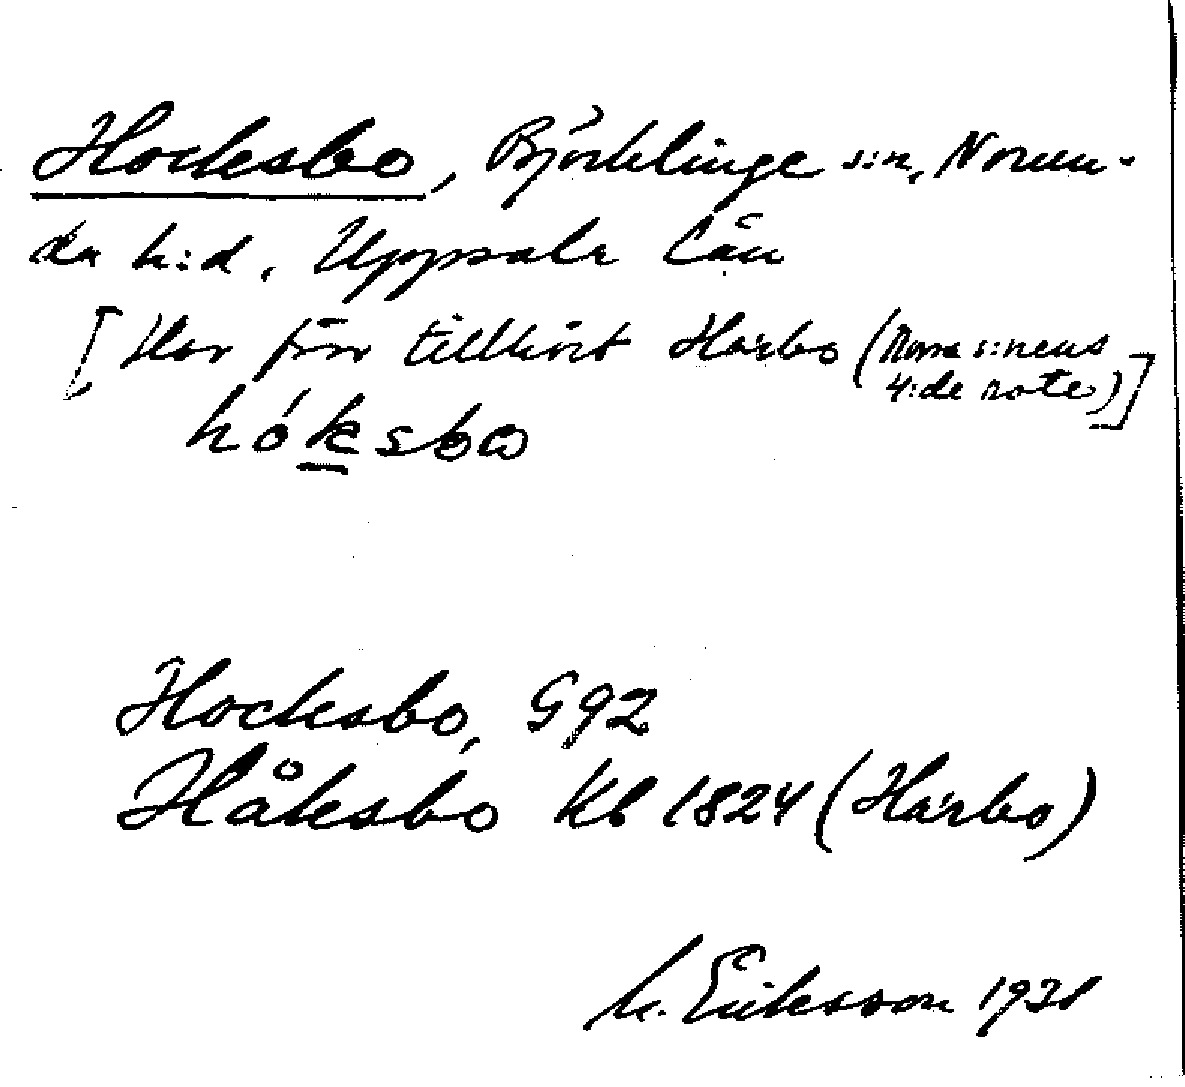 Hocksbo, Björklinge s:n, Norun-
da h:d, Uppsala län
[Har förr tillhört Harbo (Norra s:nens
4:de rote)]
hóksbω
Hocksbo, G92
Håksbo Kb 1824 (Harbo)
M. Eriksson 1938